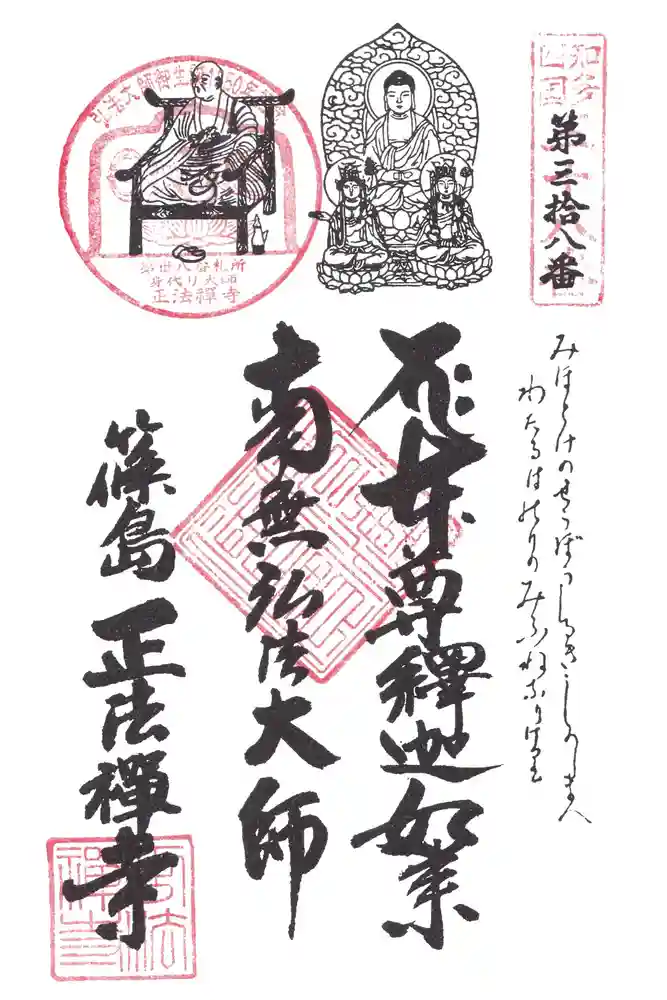 知多
四国
第三拾八番
みほとけのせつぽつしるきしのしまへ
わたるはのりのみふねなりけり
本尊釋迦如来
南無弘法大師
篠島 正法禪寺
弘法大師御生誕
50年
第卅八番札所
身代り大師
正法禪寺
正法
禪寺